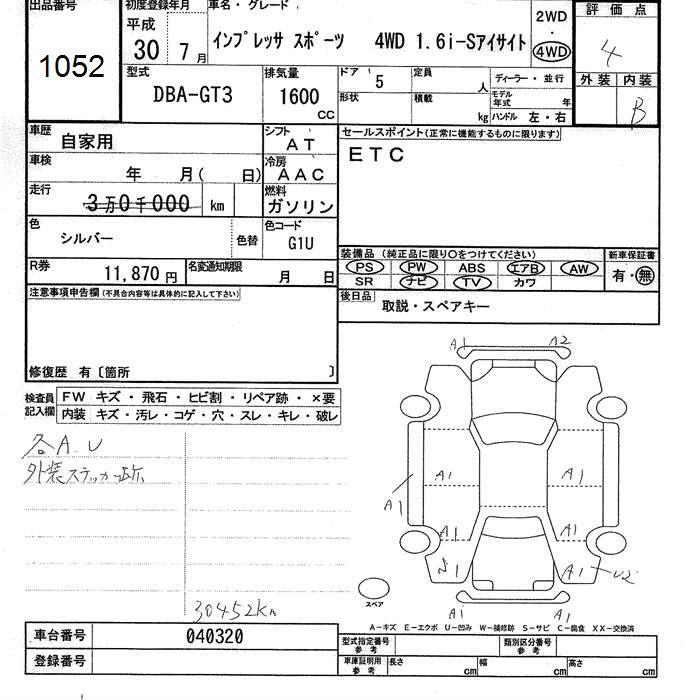 出品番号 1052
初度登録年月 平成 30 7月
車名・グレード インプレッサ スポーツ 4WD 1.6i-Sアイサイト
2WD ・ 4WD
評価点 4
外装 内装 B
型式 DBA-GT3
排気量 1600 CC
ドア 5 定員 人
形状 積載 kg
ディーラー・並行
モデル年式 年
ハンドル 左・右
車歴 自家用
シフト AT
セールスポイント(正常に機能するものに限ります)
ETC
車検 年 月( 日)
冷房 AAC
走行 3万0千000 km
燃料 ガソリン
色 シルバー 色替
色コード G1U
R券 11,870円
名変通知期限 月 日
装備品 (純正品に限り〇をつけてください)
PS PW ABS エアB AW
SR ナビ TV カワ
新車保証書 有・無
後日品 取説・スペアキー
注意事項申告欄(不具合内容等は具体的に記入して下さい)
修復歴 有〔箇所 〕
検査員記入欄
FW キズ・飛石・ヒビ割・リペア跡・×要
内装 キズ・汚レ・コゲ・穴・スレ・キレ・破レ
各A.U
外装ステッカー跡
30452Km
A1 A2
A1 A1
A1
A1 A1
1 A1 U2
A1 A1
スペア
A-キズ E-エクボ U-凹み W-補修跡 S-サビ C-腐食 XX-交換済
車台番号 040320
登録番号
型式指定番号 参考
類別区分番号 参考
車庫証明用 参考 長さ cm 幅 cm 高さ cm